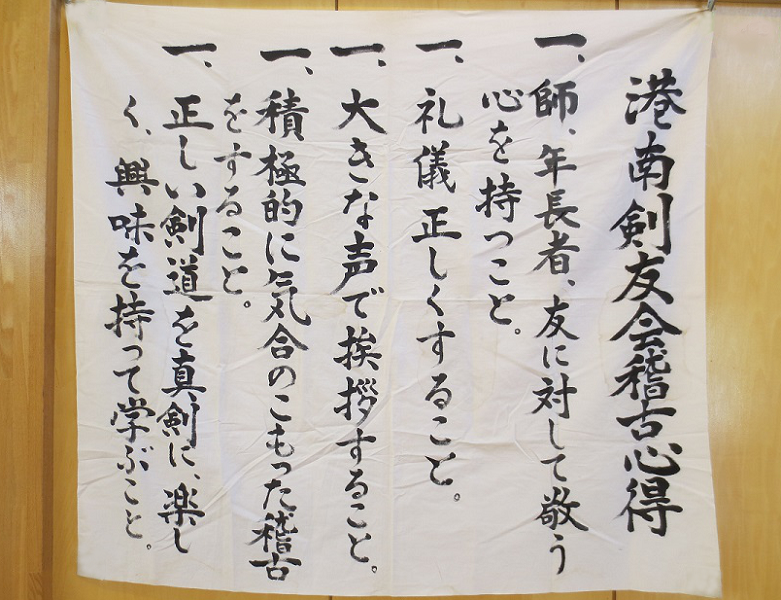 港南剣友会稽古心得
一、師、年長者、友に対して敬う
心を持つこと。
一、礼儀正しくすること。
一、大きな声で挨拶すること。
一、積極的に気合のこもった稽古
をすること。
一、正しい剣道を真剣に、楽し
く、興味を持って学ぶこと。